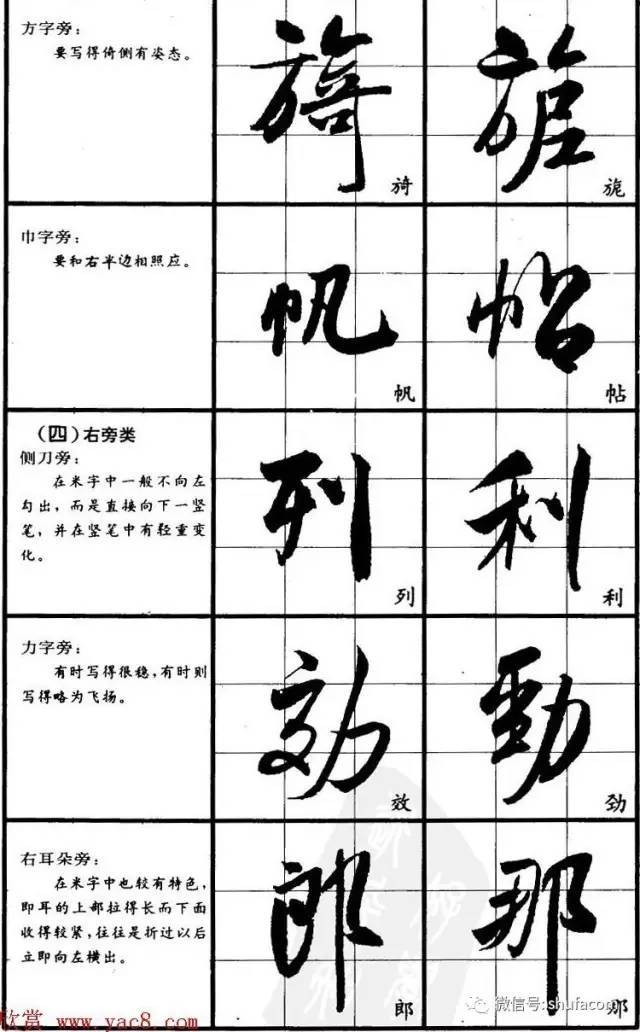 方字旁：
要写得倚侧有姿态。
旖
旎
旖
旎
巾字旁：
要和右半边相照应。
帆
帖
帆
帖
（四）右旁类
侧刀旁：
在米字中一般不向左
勾出，而是直接向下一竖
笔，并在竖笔中有轻重变
化。
列
利
列
利
力字旁：
有时写得很稳，有时则
写得略为飞扬。
効
勁
效
劲
右耳朵旁：
在米字中也较有特色，
即耳的上部拉得长而下面
收得较紧，往往是折过以后
立即向左横出。
郎
那
郎
那
微信号：shufacom
欣赏 www.yac8.com